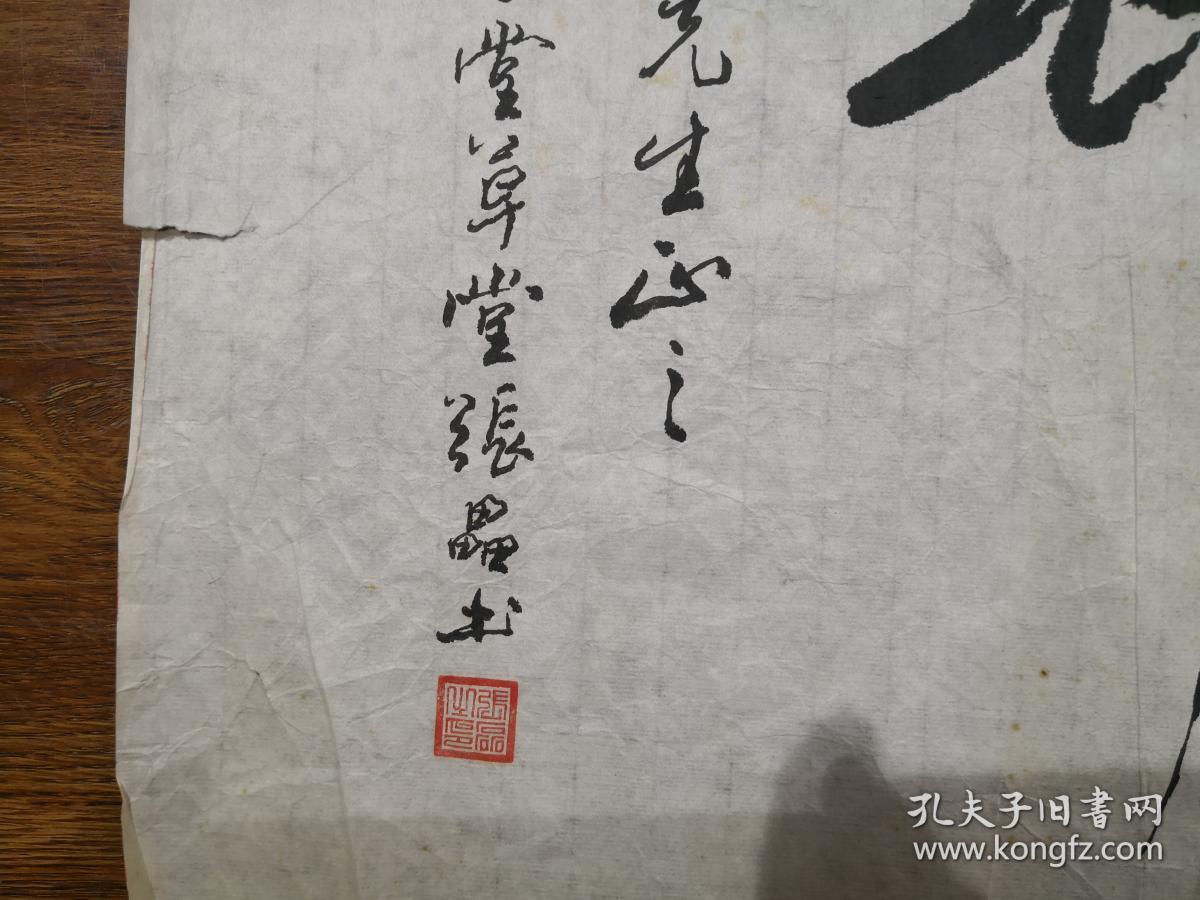 先生正之
堂草堂張磊书
張磊之印
孔夫子旧書网
www.kongfz.com